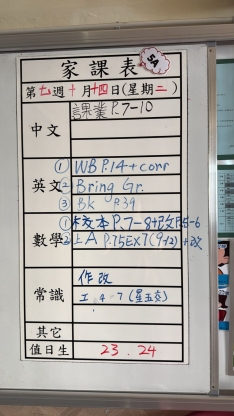 家課表
5A
第七週十月十四日(星期二)
中文
課業 P.7-10
英文
① WB P.14 + corr
② Bring Gr.
③ Bk P.39
數學
① 作文本 P.7-8+改P.5-6
② 上A P.75Ex7(9+2)+改
常識
作改
工 4-7 (星五交)
其它
值日生
23. 24